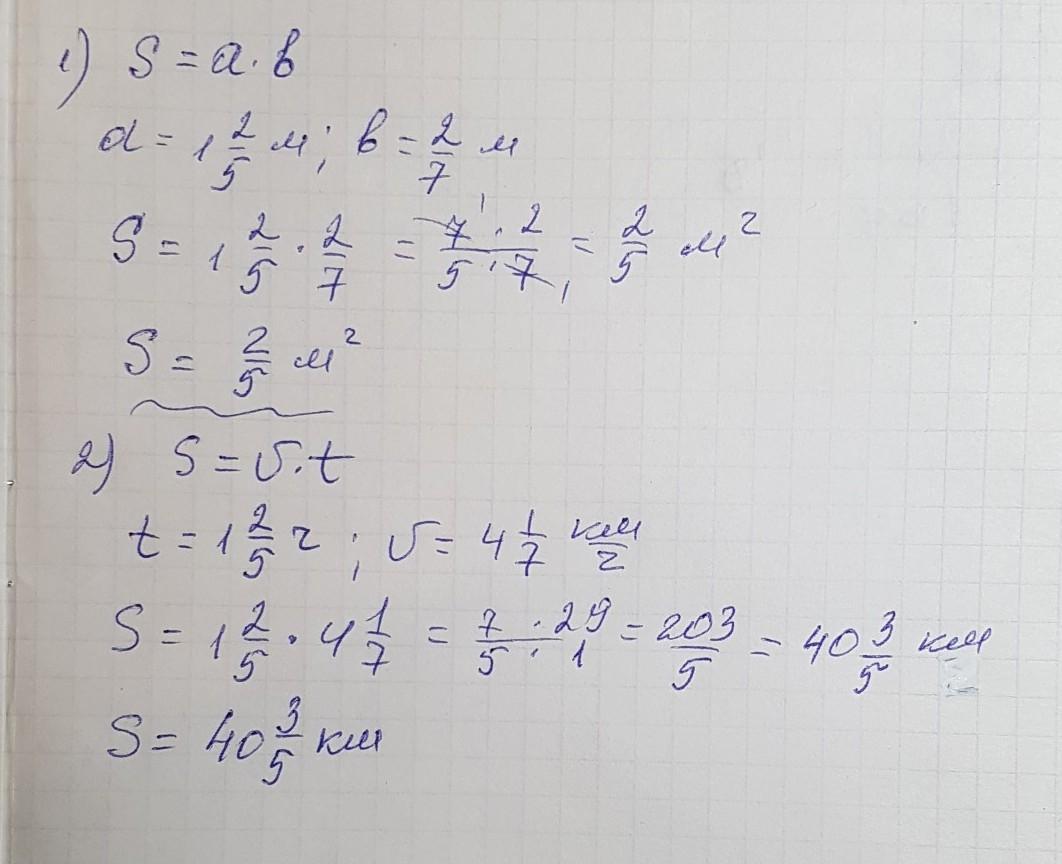 1) S = a · b
a = 1 2/5 м; b = 2/7 м
S = 1 2/5 · 2/7 = 7 · 2 / 5 · 7 = 2/5 м²
S = 2/5 м²
2) S = υ · t
t = 1 2/5 ч; υ = 4 1/7 км/ч
S = 1 2/5 · 4 1/7 = 7 · 29 / 5 · 1 = 203/5 = 40 3/5 км
S = 40 3/5 км